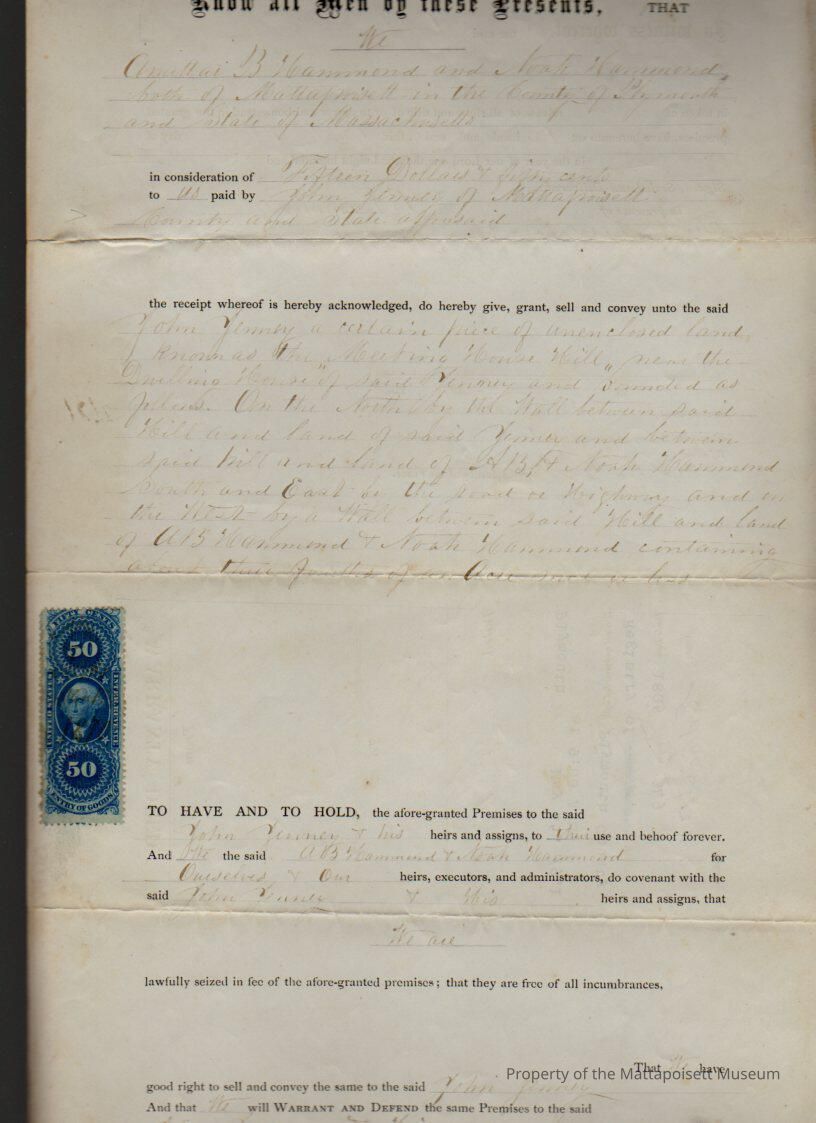 Know all Men by these Presents, THAT
We
Amittai B Hammond and Noah Hammond
both of Mattapoisett in the County of Plymouth
and State of Massachusetts
in consideration of Fifteen Dollars & fifty cents
to us paid by John Jenney of Mattapoisett
County and State aforesaid
the receipt whereof is hereby acknowledged, do hereby give, grant, sell and convey unto the said
John Jenney a certain piece of unenclosed land,
known as the "Meeting House Hill" near the
Dwelling House of said Jenney and bounded as
follows. On the North by the Wall between said
Hill and land of said Jenney and between
said hill and land of A B & Noah Hammond
South and East by the road or Highway and on
the West by a Wall between said Hill and land
of A B Hammond & Noah Hammond containing
about three fourths of an Acre more or less
FIFTY CENTS
50
UNITED STATES
INTER. REVENUE
50
ENTRY OF GOODS
TO HAVE AND TO HOLD, the afore-granted Premises to the said
John Jenney & his heirs and assigns, to their use and behoof forever.
And We the said A B Hammond & Noah Hammond for
Ourselves & Our heirs, executors, and administrators, do covenant with the
said John Jenney & His heirs and assigns, that
We are
lawfully seized in fee of the afore-granted premises; that they are free of all incumbrances,
That We have
good right to sell and convey the same to the said John Jenney
And that We will WARRANT AND DEFEND the same Premises to the said
Property of the Mattapoisett Museum